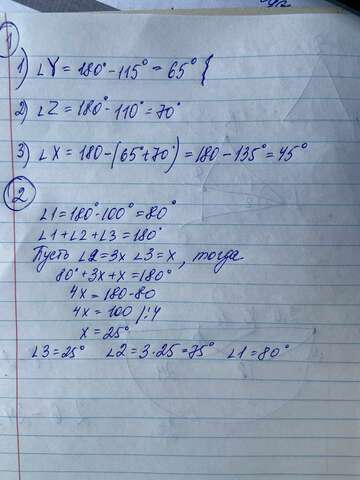 1
1) ∠Y = 180° - 115° = 65° {
2) ∠Z = 180° - 110° = 70°
3) ∠X = 180 - (65° + 70°) = 180 - 135° = 45°
2
∠1 = 180° - 100° = 80°
∠1 + ∠2 + ∠3 = 180°
Пусть ∠2 = 3x ∠3 = x, тогда
80° + 3x + x = 180°
4x = 180 - 80
4x = 100 /:4
x = 25°
∠3 = 25° ∠2 = 3 · 25 = 75° ∠1 = 80°